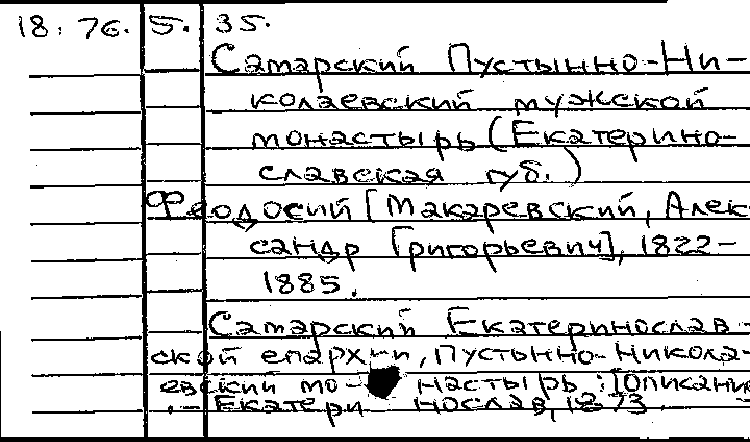 18. 76. 5. 35.
Самарский Пустынно-Ни-
колаевский мужской
монастырь (Екатерино-
славская губ.)
Феодосий [Макаревский, Алек-
сандр Григорьевич], 1822-
1885.
Самарский Екатеринослав-
ской епархии, Пустынно-Никола-
евский мо- настырь: [Описание
.- Екатери нослав, 1873.